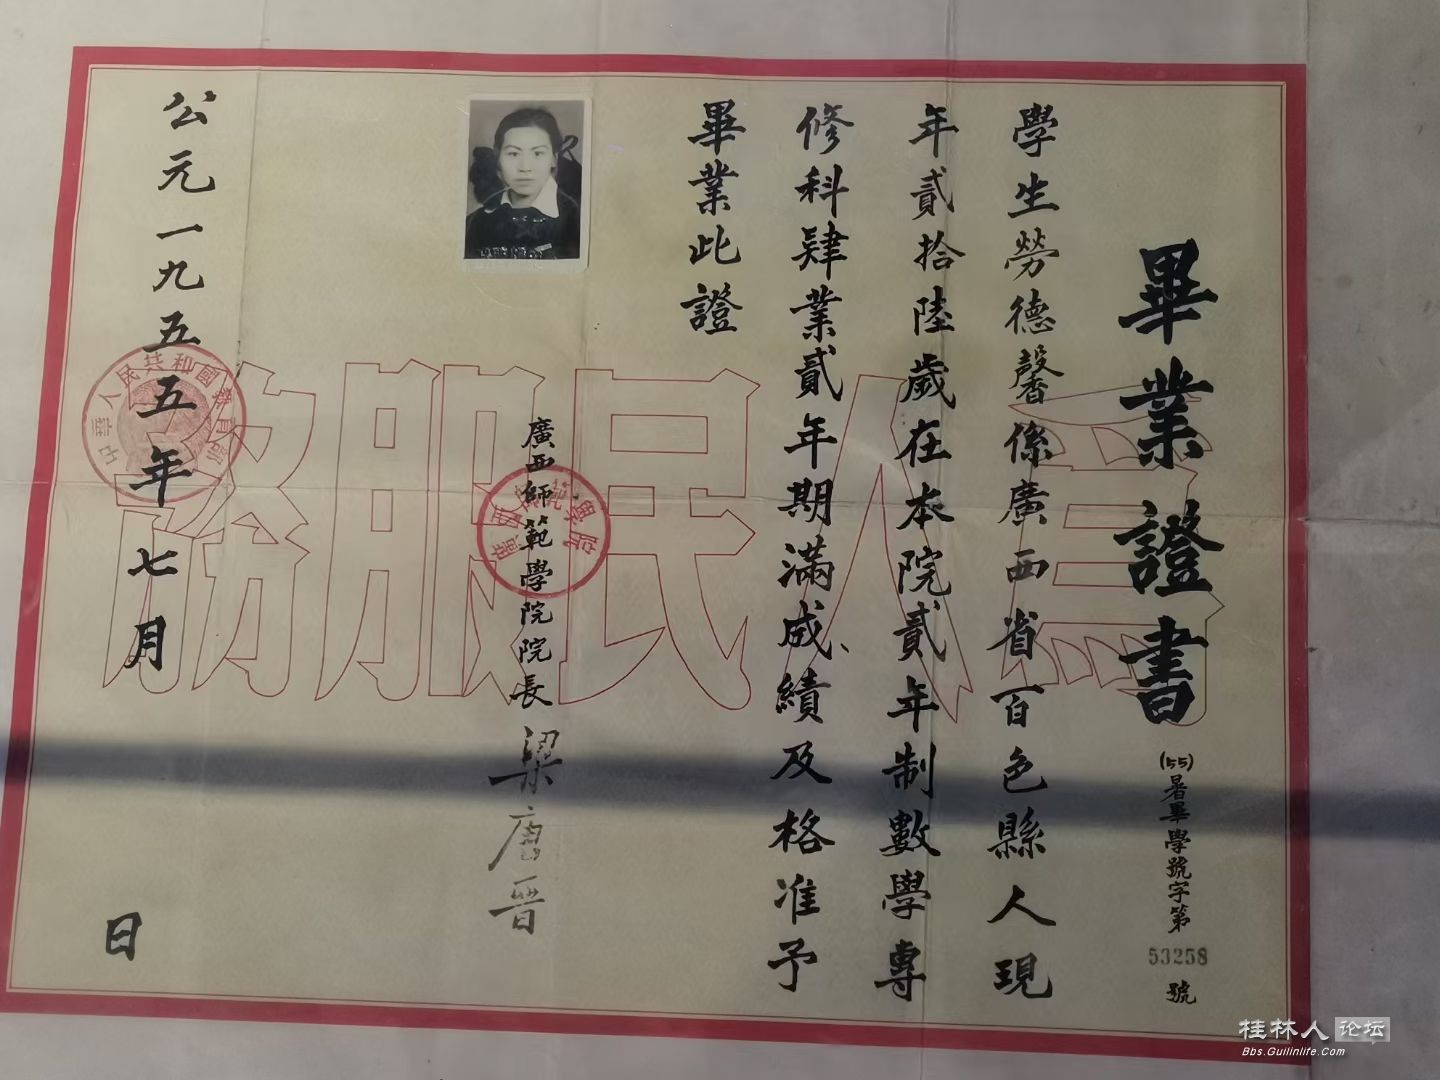 畢業證書
(55)暑畢學號字第53258號
學生勞德馨係廣西省百色縣人現
年貳拾陸歲在本院貳年制數學專
修科肄業貳年期滿成績及格准予
畢業此證
廣西師範學院院長 梁唐晉
公元一九五五年七月 日
為人民服務
中華人民共和國教育部
桂林人论坛
Bbs.Guilinlife.Com